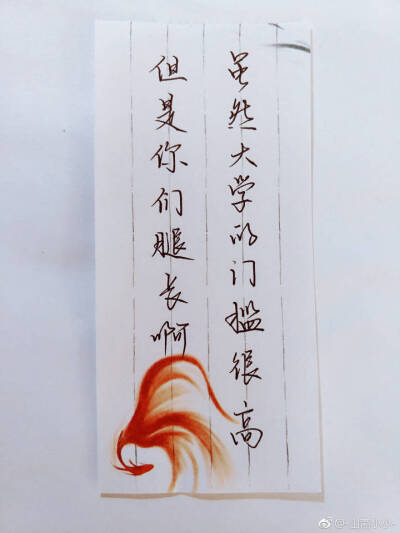 虽然大学的门槛很高
但是你们腿长啊